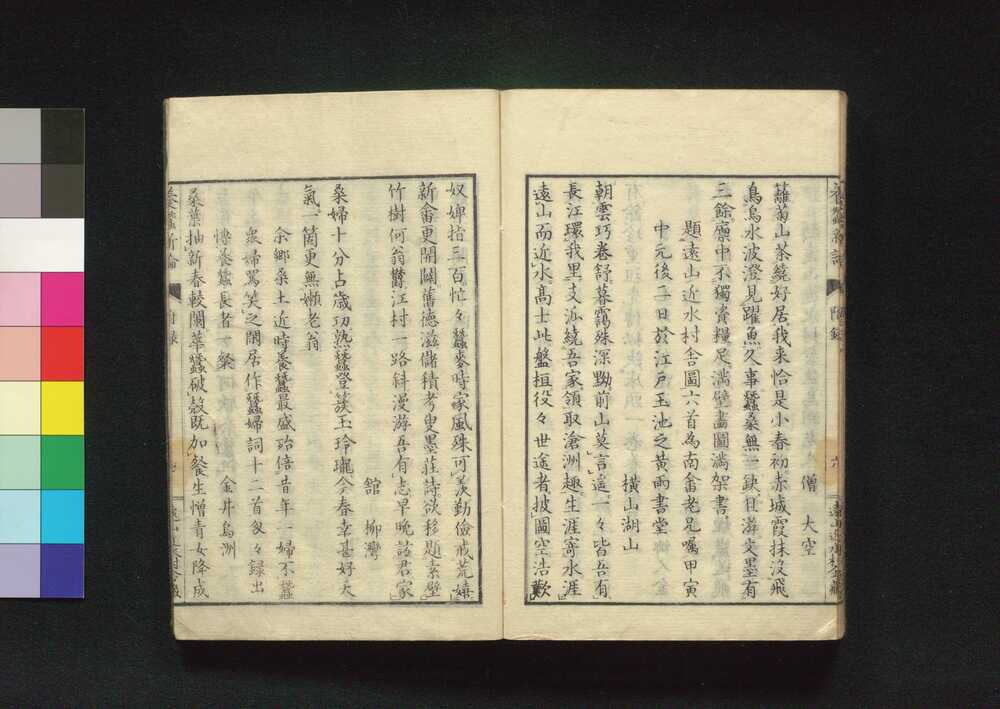 僧　大空
蘺菊山茶繞好居我来恰是小春初赤城霞抹没飛
鳥烏水波澄見躍魚久事蠶桑無一缺日游文墨有
三餘廪中不獨資糧足満壁畵圖満架書
題遠山近水村舎圖六首為南畬老兄嘱甲寅
中元後二日於江戸玉池之黄雨書堂
横山湖山
朝雲巧卷舒暮靄殊深黝前山莫言遠一々皆吾有
長江環我里支派繞吾家領取滄洲趣生涯寄水涯
遠山而近水高士此盤桓役々世途者披圖空浩歎
奴婢指三百忙々蠶麥時家風殊可羨勤儉戒荒嬉
新畬更開闢舊德滋儲積考叟墨莊詩欲移題素壁
竹樹何翁欝江村一路斜漫游吾有志早晩訪君家
舘　柳灣
桑婦十分占歳功熟蠶登簇玉玲瓏今春幸甚好天
氣一箇更無嬾老翁
余郷桑土近時養蠶最盛殆倍昔年一婦不蠶
衆婦罵笑之閒居作蠶婦詞十二首夋々録出
博養蠶長者一粲　金井烏洲
桑葉抽新春較闌華蠶破殻既加餐生憎青女降成
養蠶新論　附録
六
遠山近水村舎藏